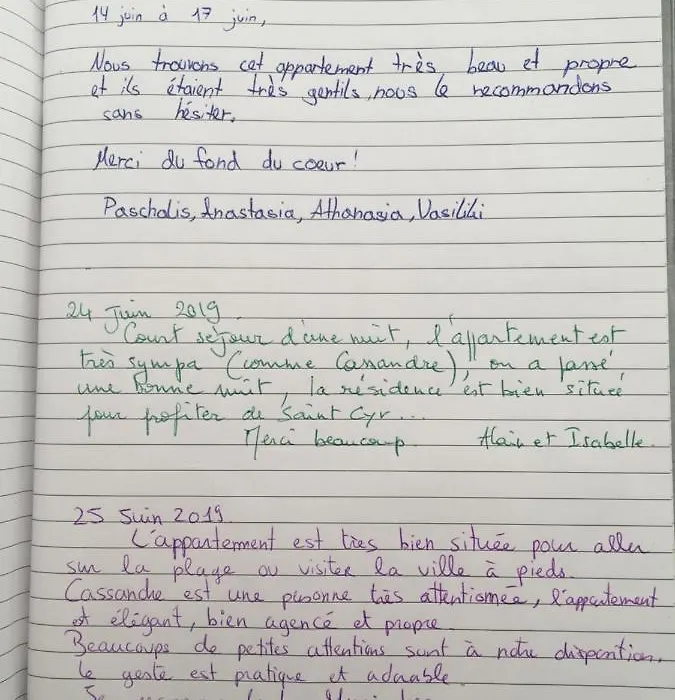 14 juin à 17 juin,
Nous trouvons cet appartement très beau et propre
et ils étaient très gentils, nous le recommandons
sans hésiter.
Merci du fond du coeur!
Paschalis, Anastasia, Athanasia, Vasiliki
24 Juin 2019.
Court séjour d'une nuit, l'appartement est
très sympa (comme Cassandre), on a passé
une bonne nuit, la résidence est bien située
pour profiter de Saint Cyr...
Merci beaucoup. Alain et Isabelle.
25 Juin 2019.
L'appartement est très bien située pour aller
sur la plage ou visiter la ville à pieds.
Cassandre est une personne très attentionnée, l'appartement
est élégant, bien agencé et propre.
Beaucoups de petites attentions sont à notre disposition,
le geste est pratique et adorable.